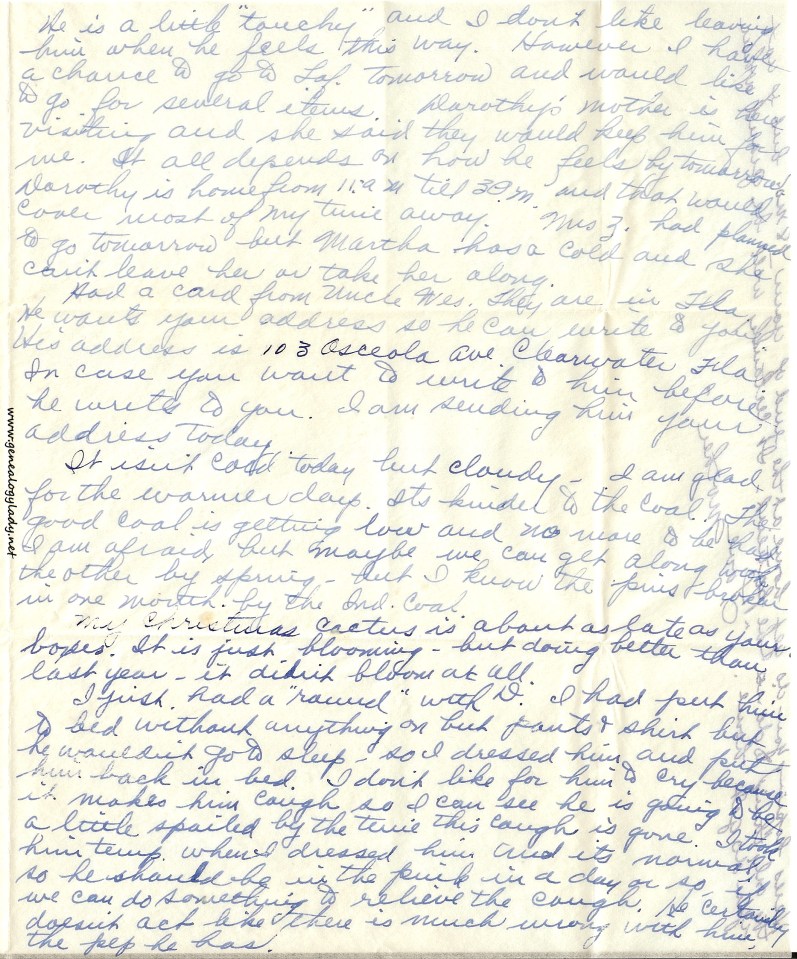 He is a little "touchy" and I don't like leaving
him when he feels this way. However I have
a chance to go to Laf. tomorrow and would like
to go for several items. Dorothy's mother is here
visiting and she said they would keep him for
me. It all depends on how he feels by tomorrow.
Dorothy is home from 11:a m till 3 P.m. and that would
cover most of my time away. Mrs Z. had planned
to go tomorrow but Martha has a cold and she
can't leave her or take her along.
Had a card from Uncle Wes. They are in Fla.
He wants your address so he can write to you.
His address is 103 Osceola Ave. Clearwater, Fla.
In case you want to write to him before
he writes to you. I am sending him your
address today.
It isn't cold today but cloudy - I am glad
for the warmer days. Its kinder to the coal. The
good coal is getting low and no more to be had
I am afraid, but maybe we can get along
the other by spring - but I know the pins broken
in one month by the Ind. coal.
My Christmas cactus is about as late as your
boxes. It is just blooming - but doing better than
last year - it didn't bloom at all.
I just had a "round" with D. I had put him
to bed without anything on but pants & shirt but
he wouldn't go to sleep - so I dressed him and put
him back in bed. I don't like for him to cry because
it makes him cough so I can see he is going to be
a little spoiled by the time this cough is gone. I took
him temp. when I dressed him and its normal,
so he should be in the pink in a day or so, if
we can do something to relieve the cough. He certainly
doesn't act like there is much wrong with him,
the pep he has.
www.genealogylady.net